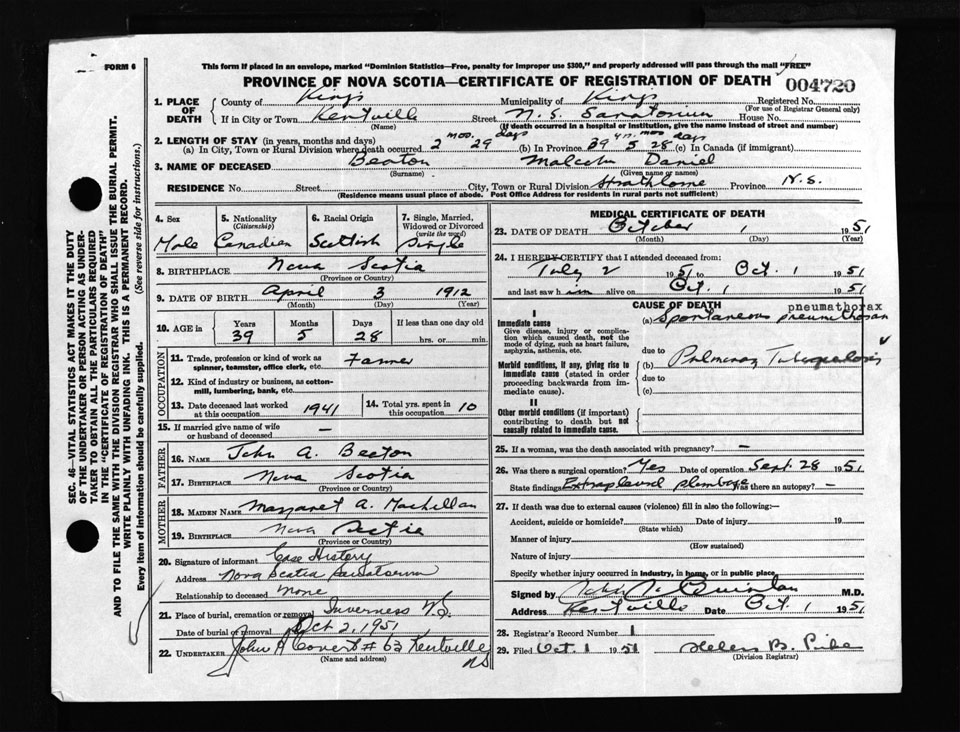 FORM 6
This form if placed in an envelope, marked "Dominion Statistics—Free, penalty for improper use $300," and properly addressed will pass through the mail "FREE"
PROVINCE OF NOVA SCOTIA—CERTIFICATE OF REGISTRATION OF DEATH
004720
1. PLACE OF DEATH
County of Kings Municipality of Kings Registered No.
(For use of Registrar General only)
If in City or Town Kentville Street N. S. Sanatorium House No.
(Name) (If death occurred in a hospital or institution, give the name instead of street and number)
2. LENGTH OF STAY (in years, months and days) mos. days yrs. mos days
(a) In City, Town or Rural Division where death occurred 2 29 (b) In Province 39 5 28 (c) In Canada (if immigrant)
3. NAME OF DECEASED Beaton Malcolm Daniel
(Surname) (Given name or names)
RESIDENCE No. Street City, Town or Rural Division Strathlorne Province N.S.
(Residence means usual place of abode. Post Office Address for residents in rural parts not sufficient.)
SEC. 46—VITAL STATISTICS ACT MAKES IT THE DUTY
OF THE UNDERTAKER OR PERSON ACTING AS UNDER-
TAKER TO OBTAIN ALL THE PARTICULARS REQUIRED
IN THE "CERTIFICATE OF REGISTRATION OF DEATH"
AND TO FILE THE SAME WITH THE DIVISION REGISTRAR WHO SHALL ISSUE THE BURIAL PERMIT.
WRITE PLAINLY WITH UNFADING INK. THIS IS A PERMANENT RECORD.
Every item of information should be carefully supplied. (See reverse side for instructions.)
4. Sex
Male
5. Nationality
(Citizenship)
Canadian
6. Racial Origin
Scottish
7. Single, Married,
Widowed or Divorced
(write the word)
Single
8. BIRTHPLACE Nova Scotia
(Province or Country)
9. DATE OF BIRTH April 3 1912
(Month) (Day) (Year)
10. AGE in Years Months Days If less than one day old
39 5 28 hrs. or min.
OCCUPATION
11. Trade, profession or kind of work as Farmer
spinner, teamster, office clerk, etc.
12. Kind of industry or business, as cotton-
mill, lumbering, bank, etc.
13. Date deceased last worked
at this occupation 1941
14. Total yrs. spent in
this occupation 10
15. If married give name of wife
or husband of deceased —
FATHER
16. NAME John A. Beaton
17. BIRTHPLACE Nova Scotia
(Province or Country)
MOTHER
18. MAIDEN NAME Margaret A. MacLellan
19. BIRTHPLACE Nova Scotia
(Province or Country)
20. Signature of informant Case History
Address Nova Scotia Sanatorium
Relationship to deceased None
21. Place of burial, cremation or removal Inverness N.S.
Date of burial or removal Oct 2, 1951
22. UNDERTAKER John A Covert # 63 Kentville
NS
(Name and address)
MEDICAL CERTIFICATE OF DEATH
23. DATE OF DEATH October 1 1951
(Month) (Day) (Year)
24. I HEREBY CERTIFY that I attended deceased from:
July 2 1951 to Oct. 1 1951
and last saw him alive on Oct. 1 1951
CAUSE OF DEATH
pneumathorax
I
Immediate cause
Give disease, injury or complica-
tion which caused death, not the
mode of dying, such as heart failure,
asphyxia, asthenia, etc.
(a) Spontaneous pneumothorax
due to
Morbid conditions, if any, giving rise to
immediate cause (stated in order
proceeding backwards from im-
mediate cause).
(b) Pulmonary Tuberculosis
due to
(c)
II
Other morbid conditions (if important)
contributing to death but not
causally related to immediate cause.
25. If a woman, was the death associated with pregnancy? —
26. Was there a surgical operation? Yes Date of operation Sept. 28 1951
State findings Extrapleural plombage Was there an autopsy? —
27. If death was due to external causes (violence) fill in also the following:—
Accident, suicide or homicide? Date of injury 19
(State which)
Manner of injury
(How sustained)
Nature of injury
Specify whether injury occurred in industry, in home, or in public place.
Signed by Quinlan M.D.
Address Kentville Date Oct. 1 1951
28. Registrar's Record Number 1
29. Filed Oct. 1 1951 Helen B.
(Division Registrar)